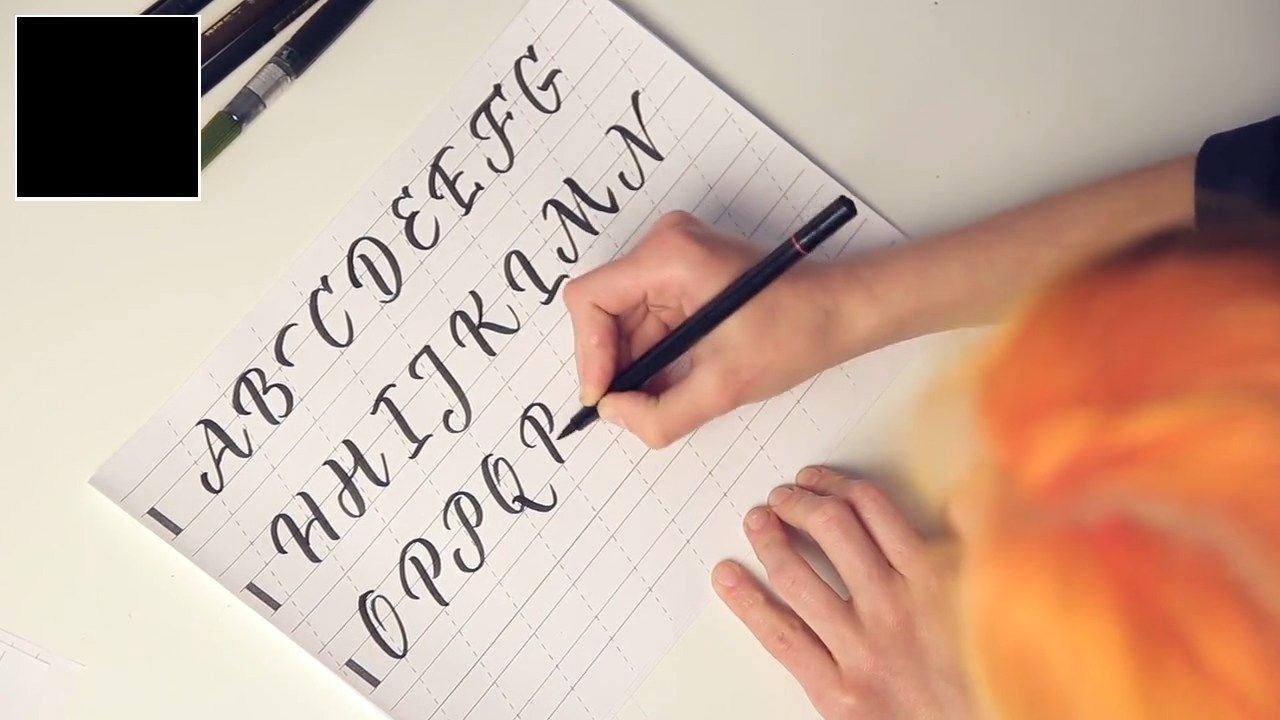 A B C D E E F G
H H I J K L M N
O P P Q P